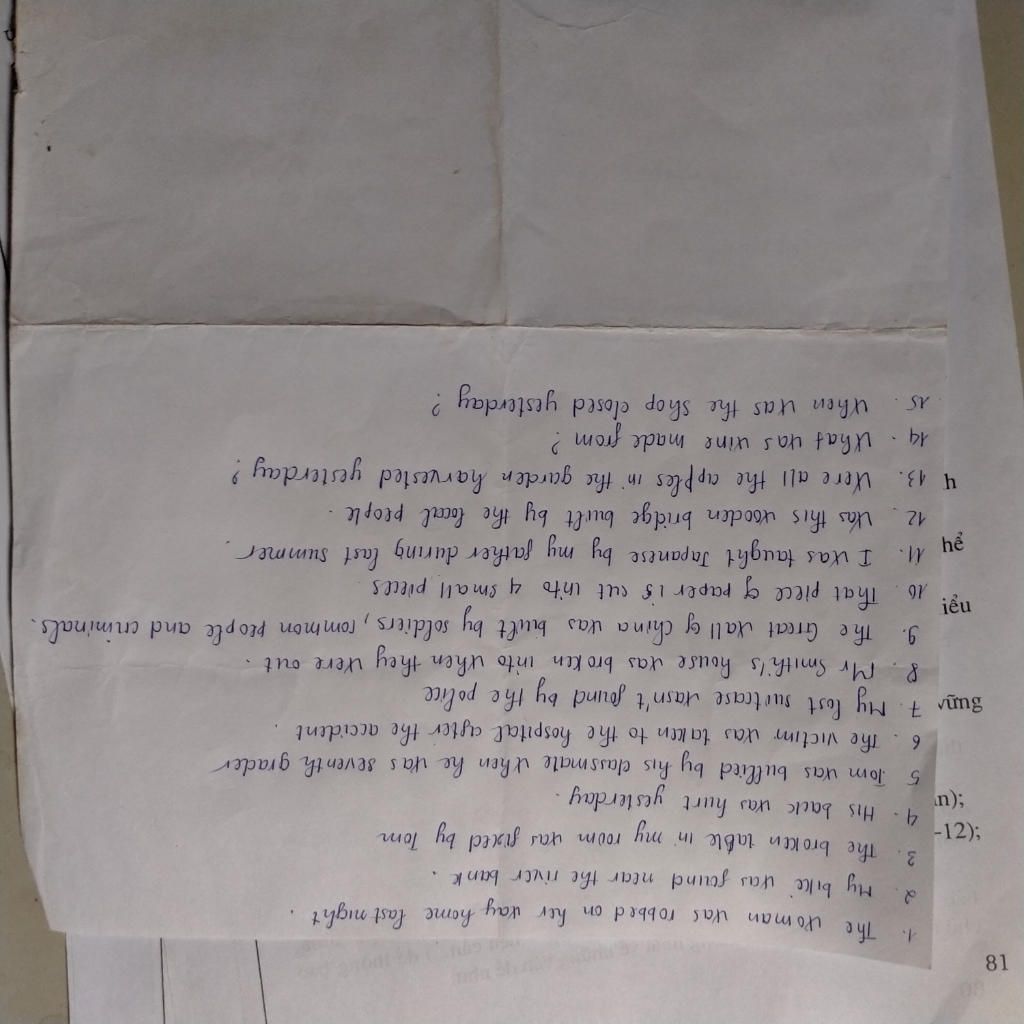 1. The woman was robbed on her way home last night.
2. My bike was found near the river bank.
3. The broken table in my room was fixed by Tom
4. His back was hurt yesterday.
5 Tom was bullied by his classmate when he was seventh grader
6. The victim was taken to the hospital after the accident.
7. My lost suitcase wasn't found by the police
8. Mr Smith's house was broken into when they were out.
9. The Great Wall of China was built by soldiers, common people and criminals.
10. That piece of paper is cut into 4 small pieces
11. I was taught Japanese by my father during last summer.
12. Was this wooden bridge built by the local people.
13. Were all the apples in the garden harvested yesterday?
14. What was wine made from?
15. When was the shop closed yesterday?
h
hể
iểu
vững
ạn);
-12);
81